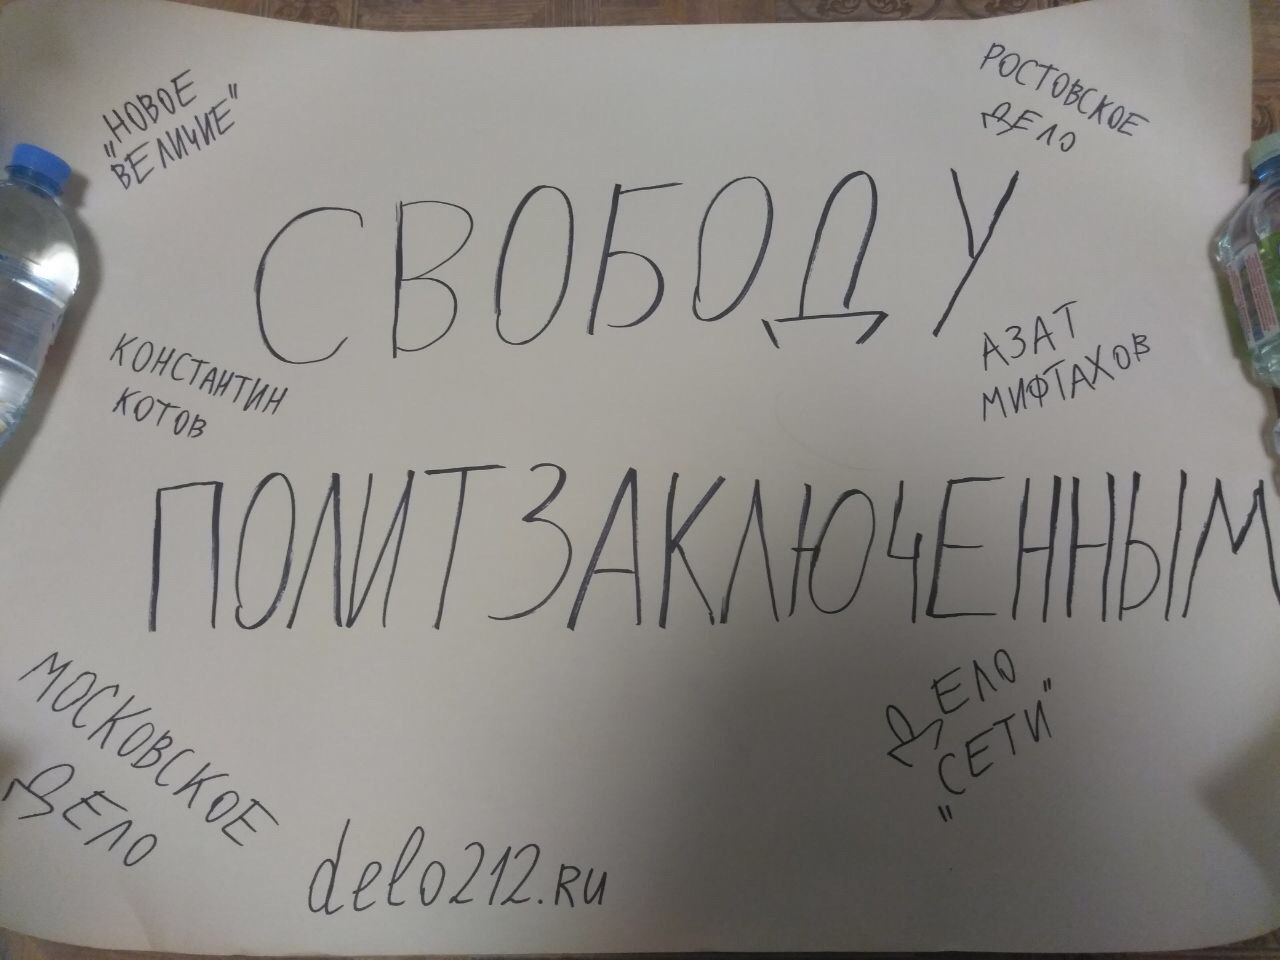 „НОВОЕ
ВЕЛИЧИЕ"
РОСТОВСКОЕ
ДЕЛО
СВОБОДУ
КОНСТАНТИН
КОТОВ
АЗАТ
МИФТАХОВ
ПОЛИТЗАКЛЮЧЕННЫМ
МОСКОВСКОЕ
ДЕЛО
ДЕЛО
„СЕТИ"
delo212.RU